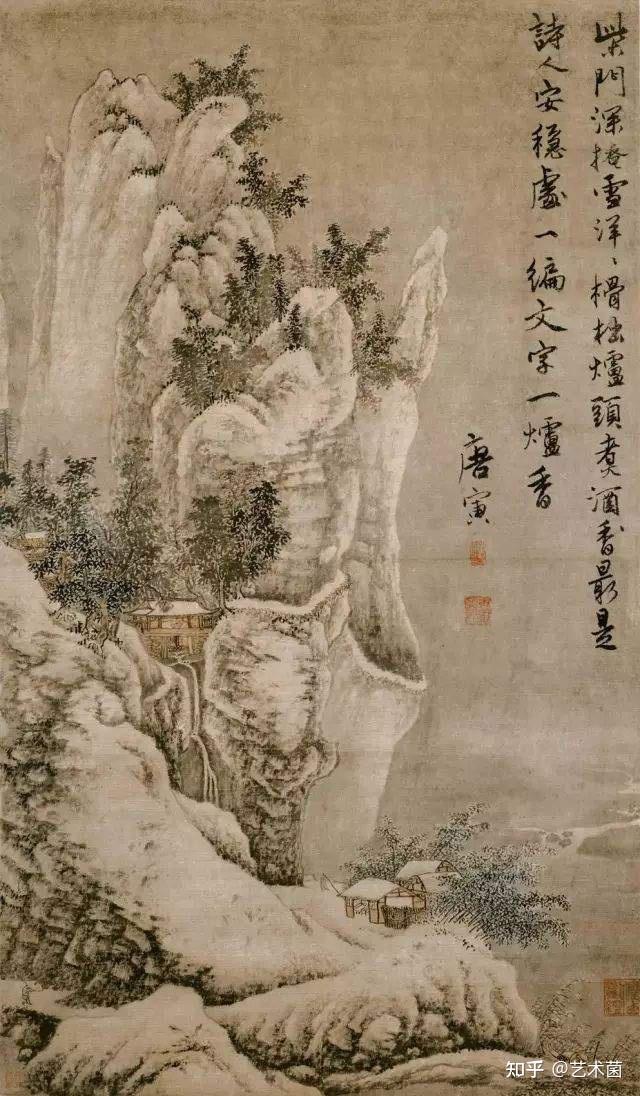 柴門深掩雪洋〻榾柮爐頭煮酒香最是
詩人安穩處一編文字一爐香
唐寅
知乎 @艺术菌